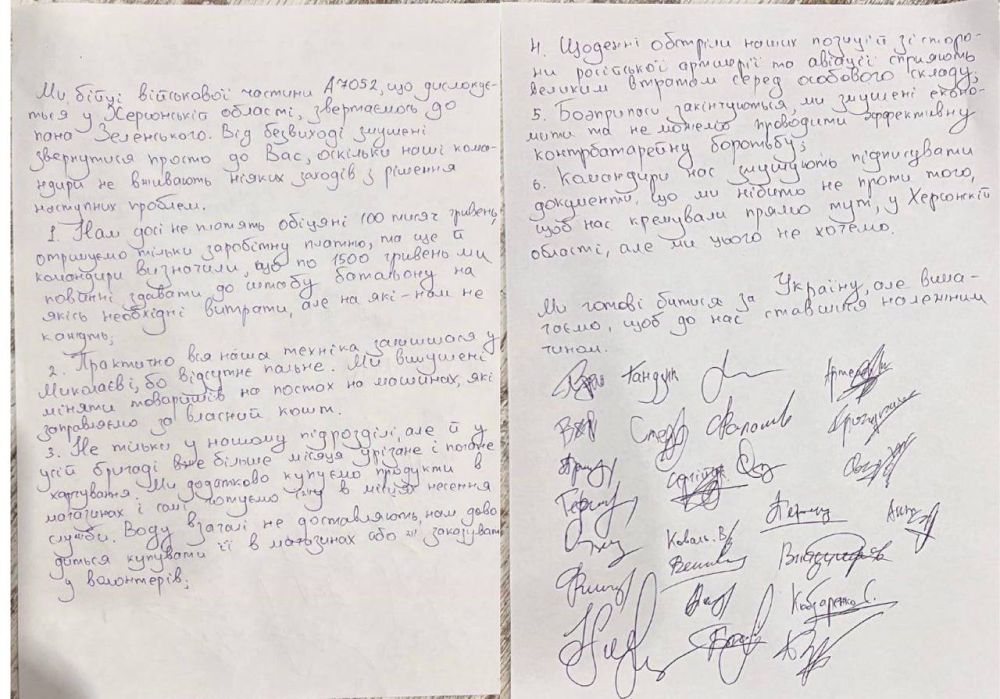 Ми, бійці військової частини А7052, що дислокує-
ться у Херсонській області, звертаємось до
пана Зеленського. Від безвиході змушені
звернутися просто до Вас, оскільки наші кома-
ндири не вживають ніяких заходів з рішення
наступних проблем.
1. Нам досі не платять обіцяні 100 тисяч гривень,
отримуємо тільки заробітну платню, та ще й
командири визначили, що по 1500 гривень ми
повинні здавати до штабу батальону на
якісь необхідні витрати, але на які - нам не
кажуть;
2. Практично вся наша техніка залишилася у
Миколаєві, бо відсутнє пальне. Ми вимушені
міняти товаришів на постох на машинах, які
заправляємо за власний кошт.
3. Не тільки у нашому підрозділі, але й у
усій бригаді вже більше місяця урізане і погане
харчування. Ми додатково купуємо продукти в
магазинах і самі готуємо їжу в місцях несення
служби. Воду взагалі не доставляють, нам дово
диться купувати її в магазинах або заказуват
у волонтерів;
4. Щоденні обстріли наших позицій зі сторо-
ни російської артилерії та авіації сприяють
великим втратам серед особового складу;
5. Боєприпаси закінчуються, ми змушені еконо-
мити та не можемо проводити эффективну
контрбатарейну боротьбу;
6. Командири нас змушують підписувати
документи, що ми нібито не проти того,
щоб нас кремували прямо тут, у Херсонскій
області, але ми цього не хотемо.
Ми готові битися за Україну, але вима-
гаємо, щоб до нас ставшися належним
чином.
Гандзук
Коваль. В.
Кобзаренко С.